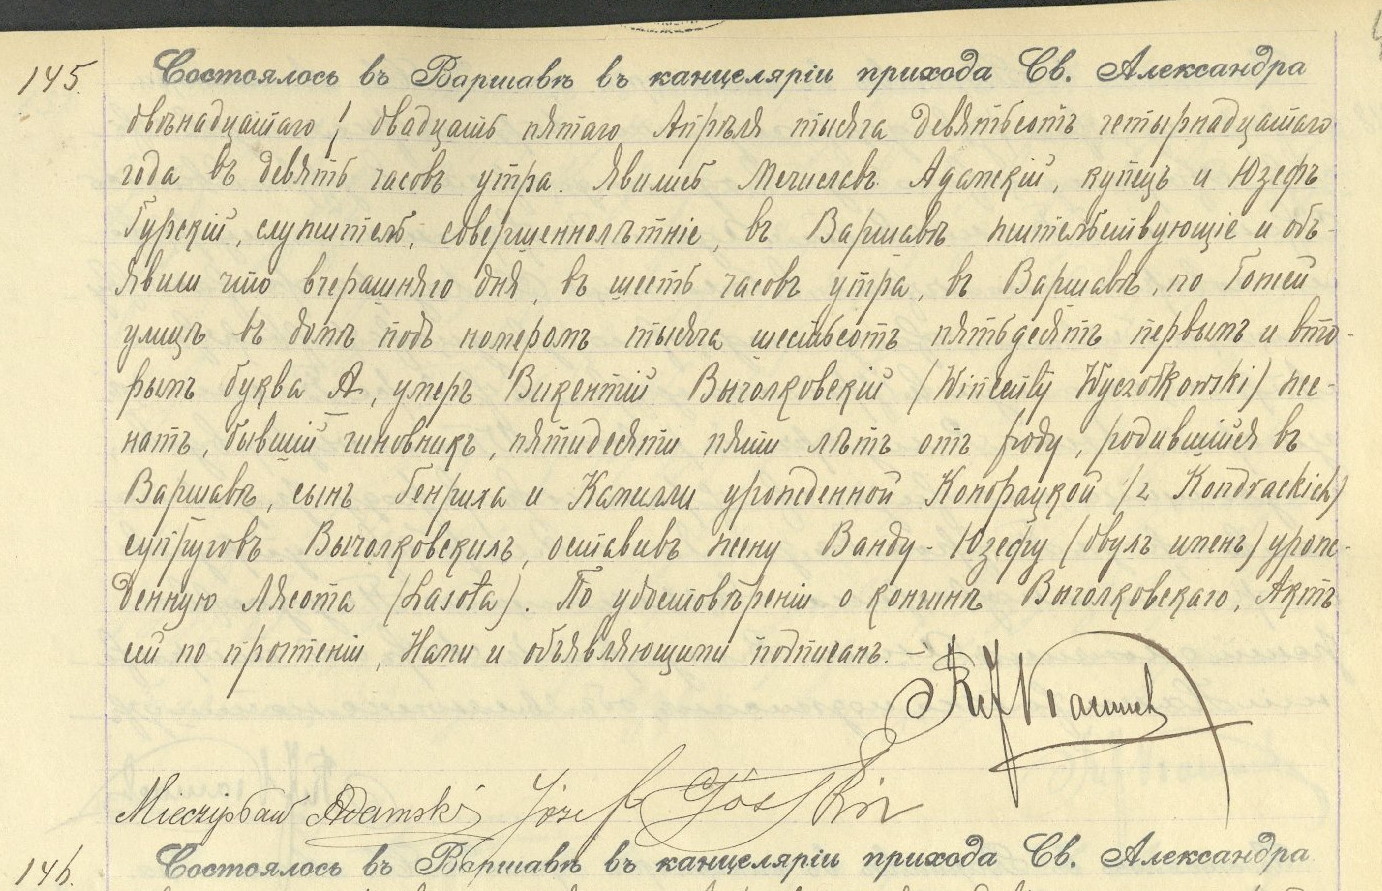 145. Состоялось въ Варшавѣ въ канцеляріи прихода Св. Александра
двѣнадцатаго / двадцать пятаго Апрѣля тысяча девятьсотъ четырнадцатаго
года въ девять часовъ утра. Явились Мечиславъ Адамскій, купецъ и Юзефъ
Гурскій, служитель, совершеннолѣтніе, въ Варшавѣ жительствующіе и объ-
явили что вчерашняго дня, въ шесть часовъ утра, въ Варшавѣ, по Гожей
улицѣ въ домѣ подъ номеромъ тысяча шестьсотъ пятьдесятъ первымъ и вто-
рымъ буква А, умеръ Викентій Вычолковскій (Wincenty Wyczołkowski) же-
натъ, бывшій чиновникъ, пятидесяти пяти лѣтъ отъ роду, родившійся въ
Варшавѣ, сынъ Генриха и Камиллы урожденной Кондрацкой (z Kondrackich)
супруговъ Вычолковскихъ, оставивъ жену Ванду-Юзефу (двухъ именъ) урож-
денную Лясота (Lasota). По удостовѣреніи о кончинѣ Вычолковскаго, Актъ
сей по прочтеніи, Нами и объявляющими подписанъ. –
Mieczysław Adamski Józef Górski
146. Состоялось въ Варшавѣ въ канцеляріи прихода Св. Александра